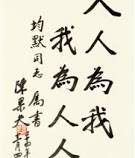 人人為我
我為人人
均默同志 屬書
陳果夫